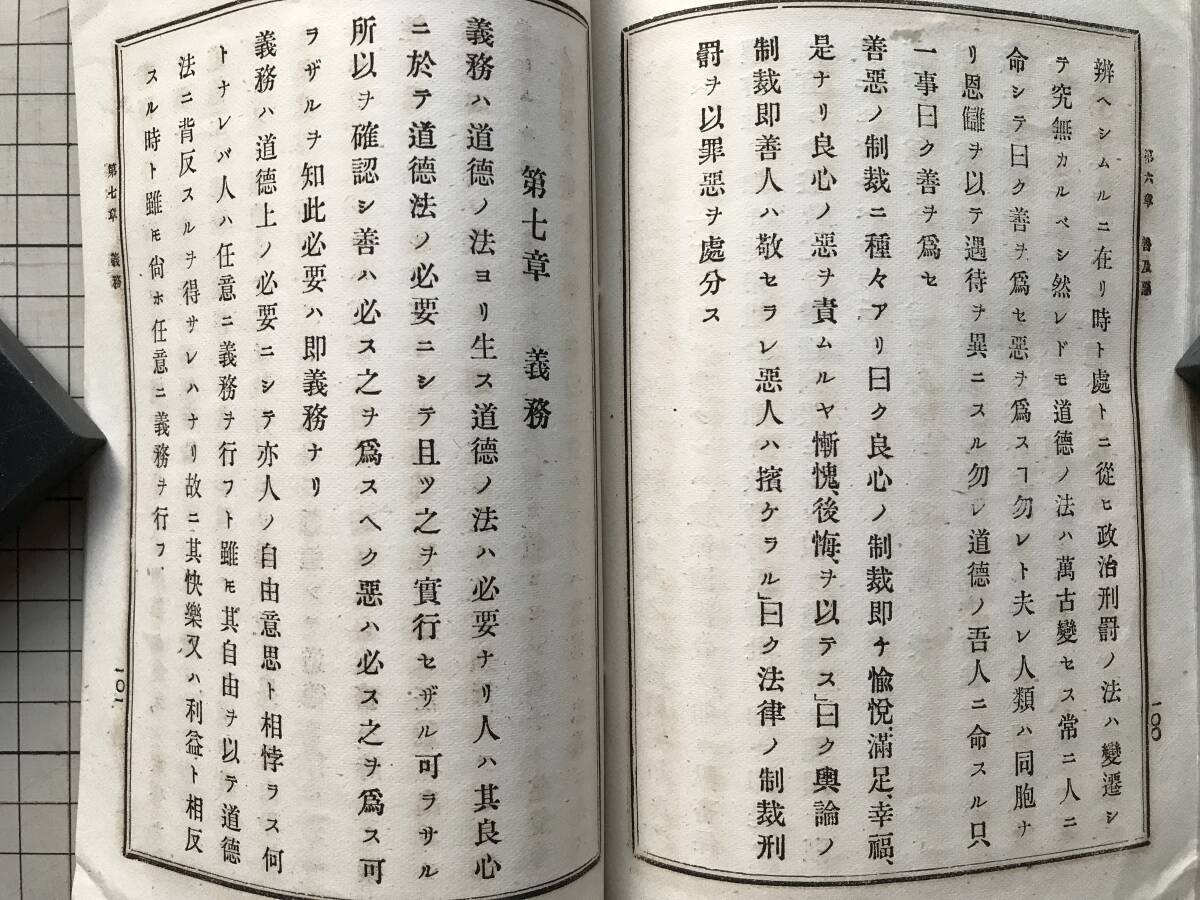 第六章 善及惡
辨ヘシムルニ在リ時ト處トニ從ヒ政治刑罰ノ法ハ變遷シ
テ究無カルベシ然レドモ道德ノ法ハ萬古變セス常ニ人ニ
命シテ曰ク善ヲ爲セ惡ヲ爲スヿ勿レト夫レ人類ハ同胞ナ
リ恩讎ヲ以テ遇待ヲ異ニスル勿レ道德ノ吾人ニ命スル只
一事曰ク善ヲ爲セ
善惡ノ制裁ニ種々アリ曰ク良心ノ制裁即チ愉悅、滿足、幸福、
是ナリ良心ノ惡ヲ責ムルヤ慚愧、後悔、ヲ以テス」曰ク輿論ノ
制裁即善人ハ敬セラレ惡人ハ擯ケラル」曰ク法律ノ制裁刑
罰ヲ以罪惡ヲ處分ス
一〇〇
第七章 義務
義務ハ道德ノ法ヨリ生ス道德ノ法ハ必要ナリ人ハ其良心
ニ於テ道德法ノ必要ニシテ且ツ之ヲ實行セザル可ラサル
所以ヲ確認シ善ハ必ス之ヲ爲スヘク惡ハ必ス之ヲ爲ス可
ヲザルヲ知此必要ハ即義務ナリ
義務ハ道德上ノ必要ニシテ亦人ノ自由意思ト相悖ラス何
トナレバ人ハ任意ニ義務ヲ行フト雖モ其自由ヲ以テ道德
法ニ背反スルヲ得サレハナリ故ニ其快樂又ハ利益ト相反
スル時ト雖モ尙ホ任意ニ義務ヲ行フ
第七章 義務
一〇一